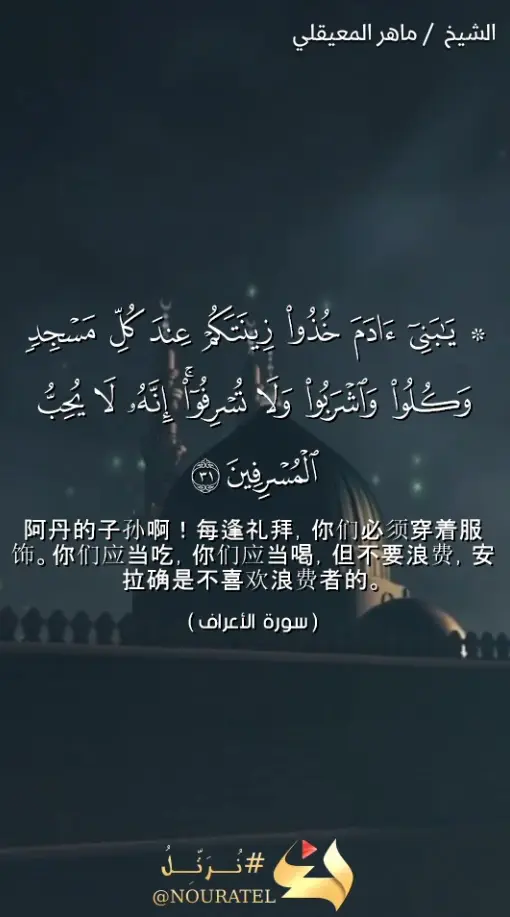 الشيخ / ماهر المعيقلي
۞ يَٰبَنِىٓ ءَادَمَ خُذُوا۟ زِينَتَكُمْ عِندَ كُلِّ مَسْجِدٍ
وَكُلُوا۟ وَٱشْرَبُوا۟ وَلَا تُسْرِفُوٓا۟ ۚ إِنَّهُۥ لَا يُحِبُّ
ٱلْمُسْرِفِينَ ٣١
阿丹的子孙啊！每逢礼拜，你们必须穿着服
饰。你们应当吃，你们应当喝，但不要浪费，安
拉确是不喜欢浪费者的。
(سورة الأعراف)
#نُرَتِّلُ
@NOURATEL